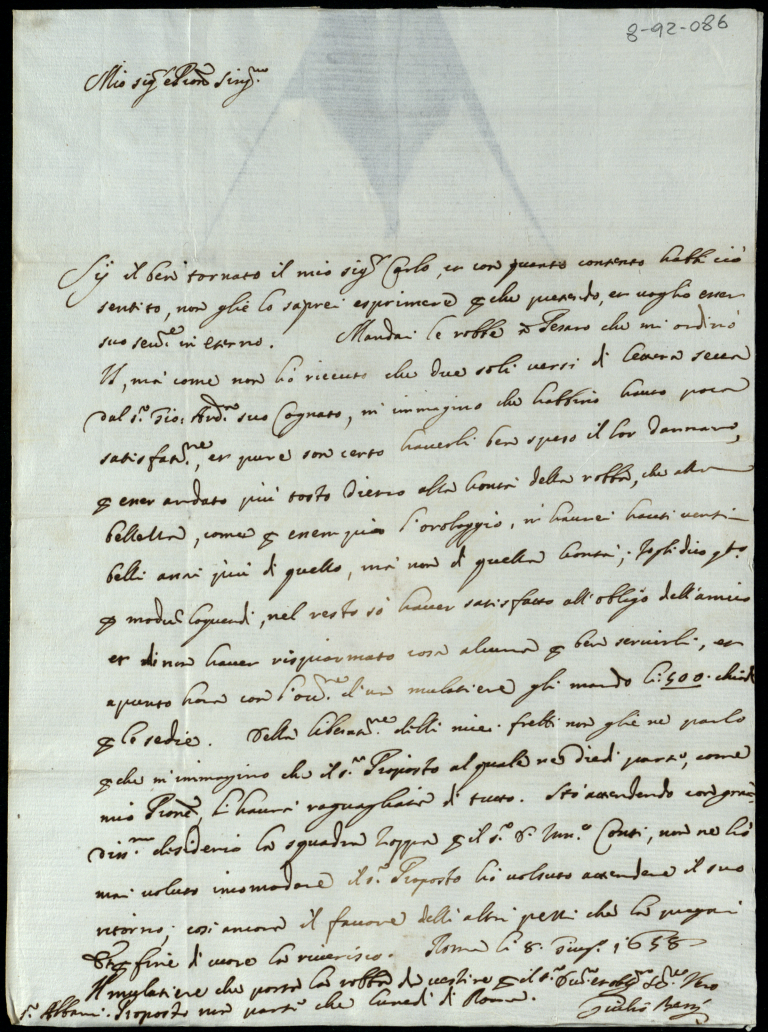 8-92-086
Mio sig.r e Pron Sing.mo
Sij il ben tornato il mio sig.r Carlo, et con quanto contento habbi ciò
sentito, non gliè lo saprei esprimere che et voglio esser
suo in eterno. Mandai le robbe Pesaro che mi ordinò
ma come non hò riceuto che due soli versi di secca
dal s.r Gio: And.a suo Cognato, m'immagino che habbino hauto poca
satisfat.ne, et pure son certo hauerli ben speso il lor dannaro,
andato più tosto dietro alla bontà della robba, che alla
bellezza, come l'orologgio, n'haurei hauti venti
belli assai più di quello, ma non di quella bontà;
modum loquendi, nel resto sò hauer satisfatto all'obligo dell'amico
et di non hauer risparmato cosa alcuna ben seruirli, et
apunto hora con l'occ.ne d'un mulatiere gli mando li: 500. chiodi
le sedie. Della liberat.ne delli miei non gliè ne parlo
che m'immagino che il s.r Proposto al quale ne diedi parte, come
mio Prone, li haurà raguagliata di tutto. Stò attendendo con gran
diss.mo desiderio la squadra zoppa il s.r Inn.o Conti, non ne hò
mai voluto incomodare il s.r Proposto hò volsuto attendere il suo
ritorno; così ancora il fauore delli altri pezzi che la pregai
fine di cuore la riuerisco. Roma li 8. Giug.o 1658
Il mulatiere che porta la robba da vestire il s.r Vero
s.r Albani Proposto non partì che lunedì di Roma. Giulio